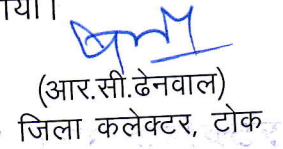 (आर.सी.ढेनवाल)
जिला कलेक्टर, टोक